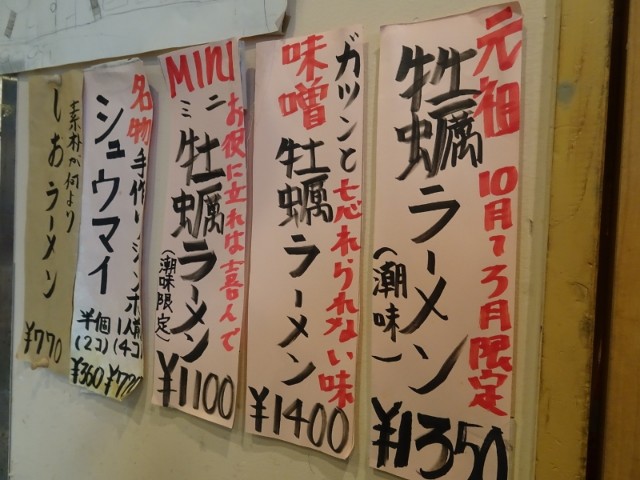 元祖 10月～3月限定
牡蠣ラーメン
(潮味)
¥1350
ガツンと忘れられない味
味噌
牡蠣ラーメン
¥1400
MINI
お役に立れば喜んで
ミニ
牡蠣ラーメン
(潮味限定)
¥1100
名物手作りジャンボ
シュウマイ
1人前(4コ)
¥720
半個(2コ)
¥360
素朴が何より
しおラーメン
¥770